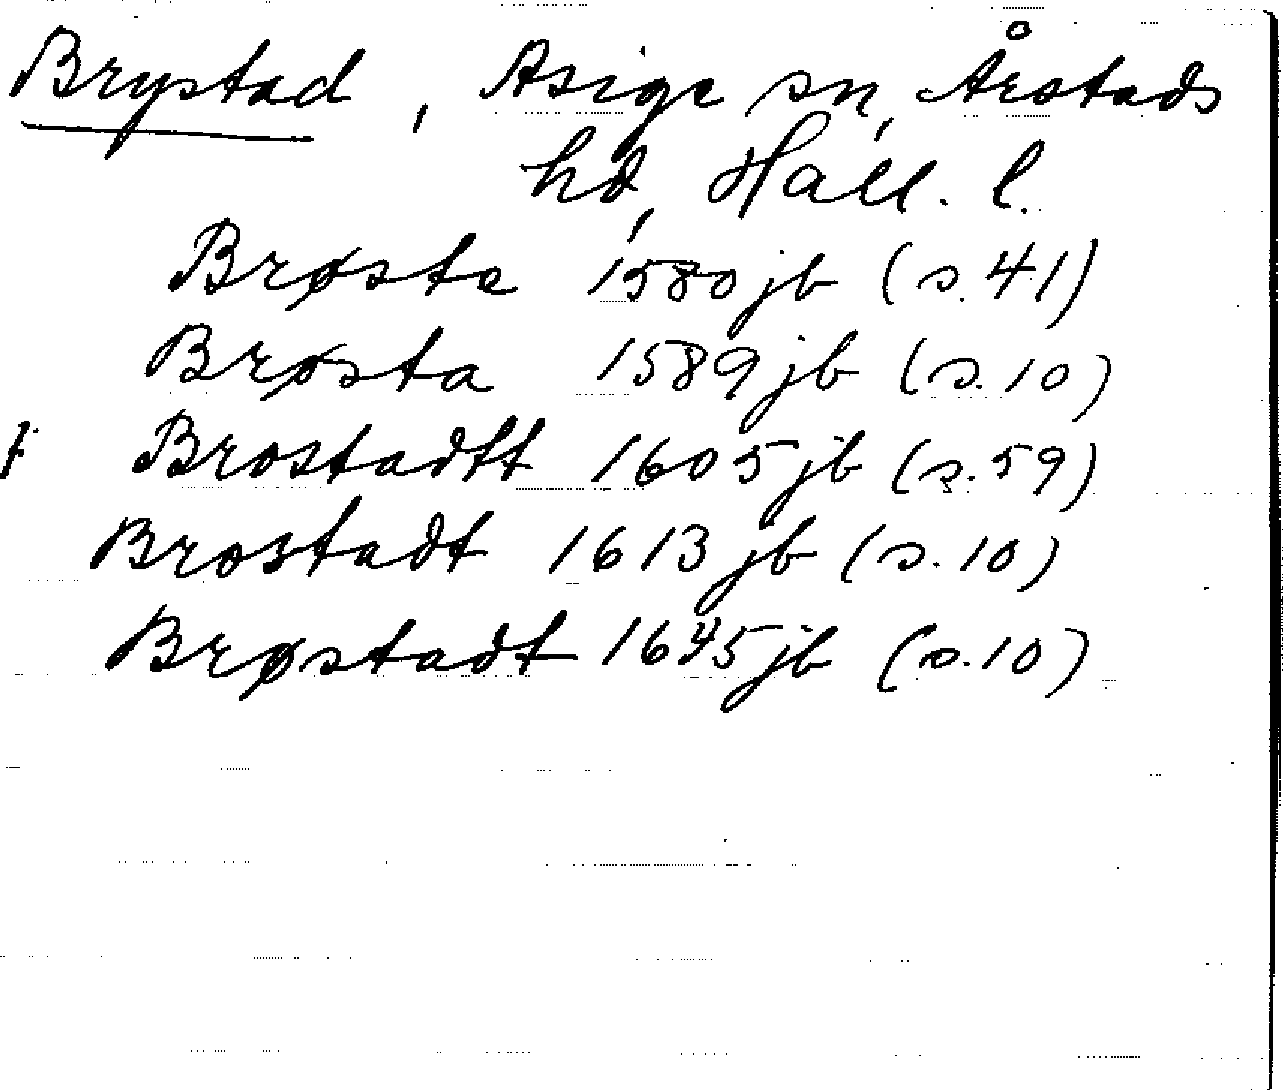 Brystad, Asige sn, Årstads
hd, Hall. l.
Brøsta 1580 jb (s. 41)
Brøsta 1589 jb (s. 10)
Brostadtt 1605 jb (s. 59)
Brostadt 1613 jb (s. 10)
Brøstadt 1645 jb (s. 10)